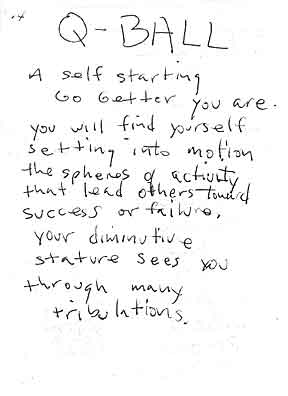 Q-BALL
A self starting
Go Getter you are.
you will find yourself
setting into motion
the spheres of activity
that lead others toward
success or failure.
your diminutive
stature sees you
through many
tribulations.